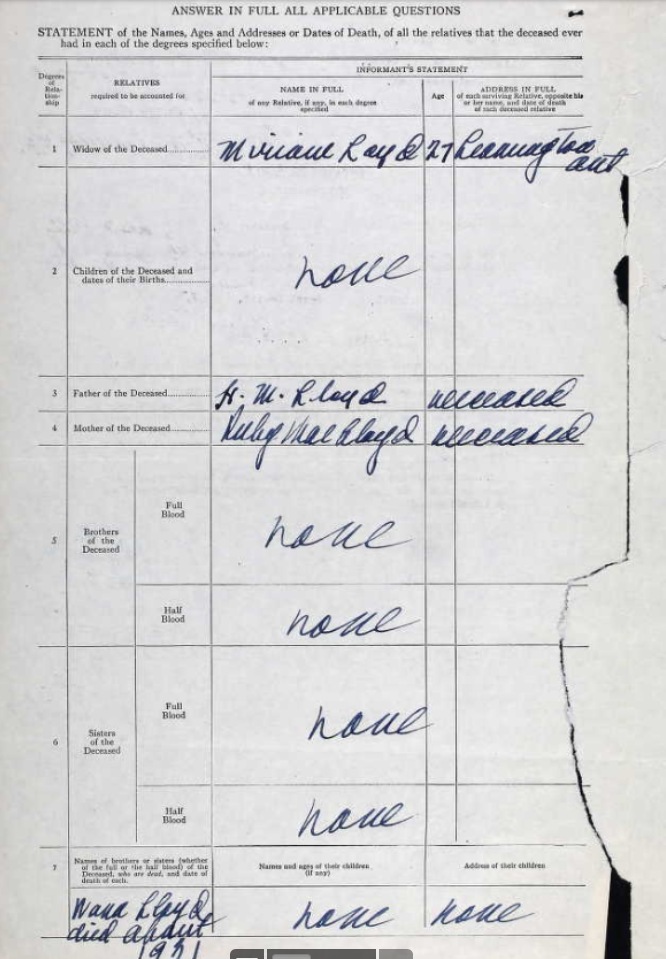 ANSWER IN FULL ALL APPLICABLE QUESTIONS
STATEMENT of the Names, Ages and Addresses or Dates of Death, of all the relatives that the deceased ever
had in each of the degrees specified below:
Degrees of Rela- tion- ship
RELATIVES
required to be accounted for
INFORMANT'S STATEMENT
NAME IN FULL
of any Relative, if any, in each degree
specified
Age
ADDRESS IN FULL
of each surviving Relative, opposite his
or her name, and date of death
of each deceased relative
1 Widow of the Deceased............ 27 Leamington
ont
2 Children of the Deceased and
dates of their Births............ none
3 Father of the Deceased............ H. M. Lloyd deceased
4 Mother of the Deceased............ Ruby Mae Lloyd deceased
5 Brothers
of the
Deceased
Full
Blood
none
Half
Blood
none
6 Sisters
of the
Deceased
Full
Blood
none
Half
Blood
none
7 Names of brothers or sisters (whether
of the full or the half blood) of the
Deceased, who are dead, and date of
death of each.
Names and ages of their children
(if any)
Address of their children
Lloyd none none
died about
1931